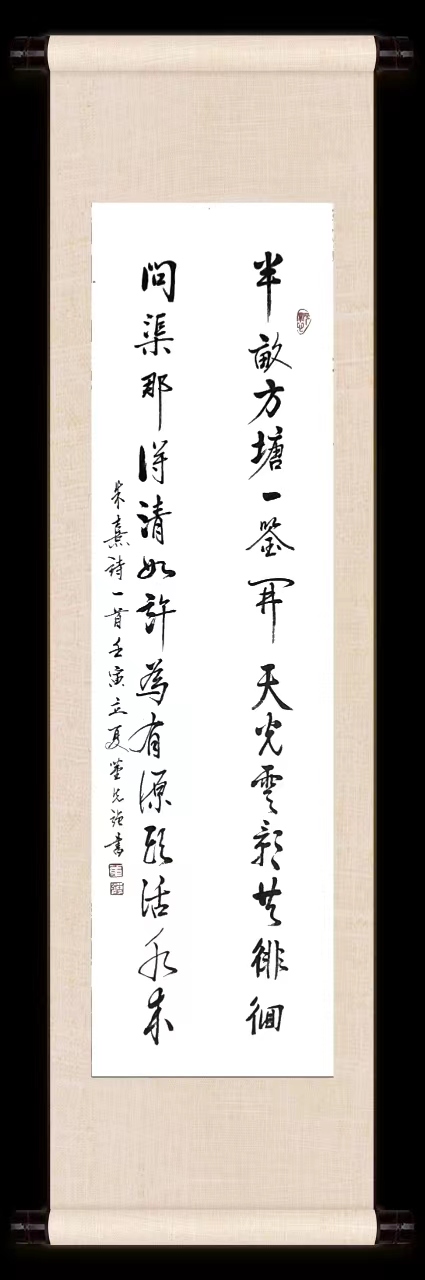 半畝方塘一鉴開天光雲影共徘徊
問渠那得清如許為有源頭活水來
朱熹詩一首壬寅立夏董先強書